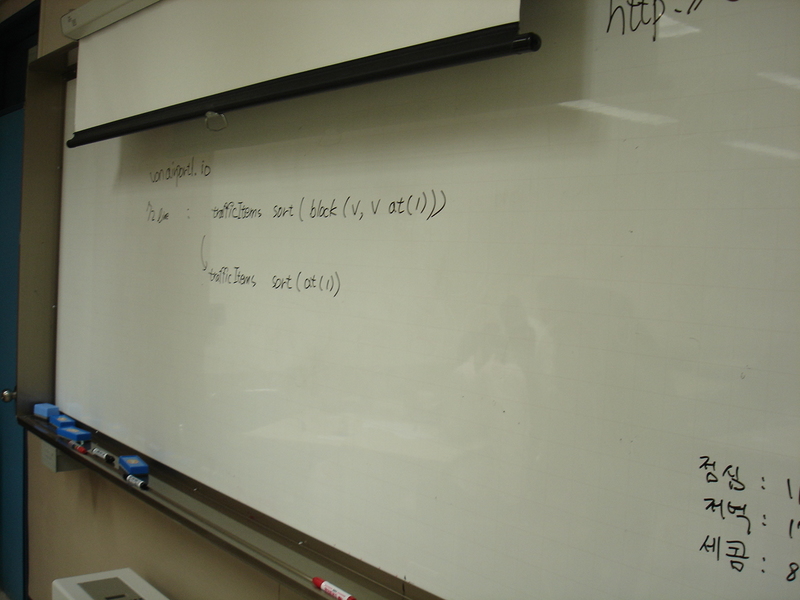 http://
trafficItems sort(block(v, v at(1)))
trafficItems sort(at(1))
점심 : 11
저녁 : 1
세콤 : 8